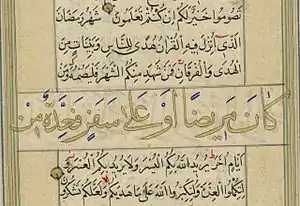 تَصُومُوا خَيْرٌ لَكُمْ إِنْ كُنْتُمْ تَعْلَمُونَ شَهْرُ رَمَضَانَ
الَّذِى أُنْزِلَ فِيهِ الْقُرْآنُ هُدًى لِلنَّاسِ وَبَيِّنَاتٍ مِنَ
الْهُدَى وَالْفُرْقَانِ فَمَنْ شَهِدَ مِنْكُمُ الشَّهْرَ فَلْيَصُمْهُ وَمَنْ
كَانَ مَرِيضًا أَوْ عَلَى سَفَرٍ فَعِدَّةٌ مِنْ
أَيَّامٍ أُخَرَ يُرِيدُ اللَّهُ بِكُمُ الْيُسْرَ وَلَا يُرِيدُ بِكُمُ الْعُسْرَ
وَلِتُكْمِلُوا الْعِدَّةَ وَلِتُكَبِّرُوا اللَّهَ عَلَى مَا هَدَيكُمْ وَلَعَلَّكُمْ تَشْكُرُونَ